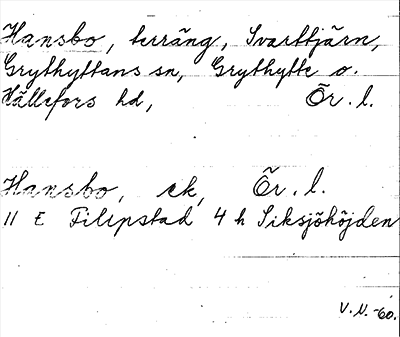 Hansbo, terräng, Svarttjärn,
Grythyttans sn, Grythytte o.
Hällefors hd, Ör. l.
Hansbo, ek, Ör. l.
11 E Filipstad 4 h Siksjöhöjden
V.N. -60.